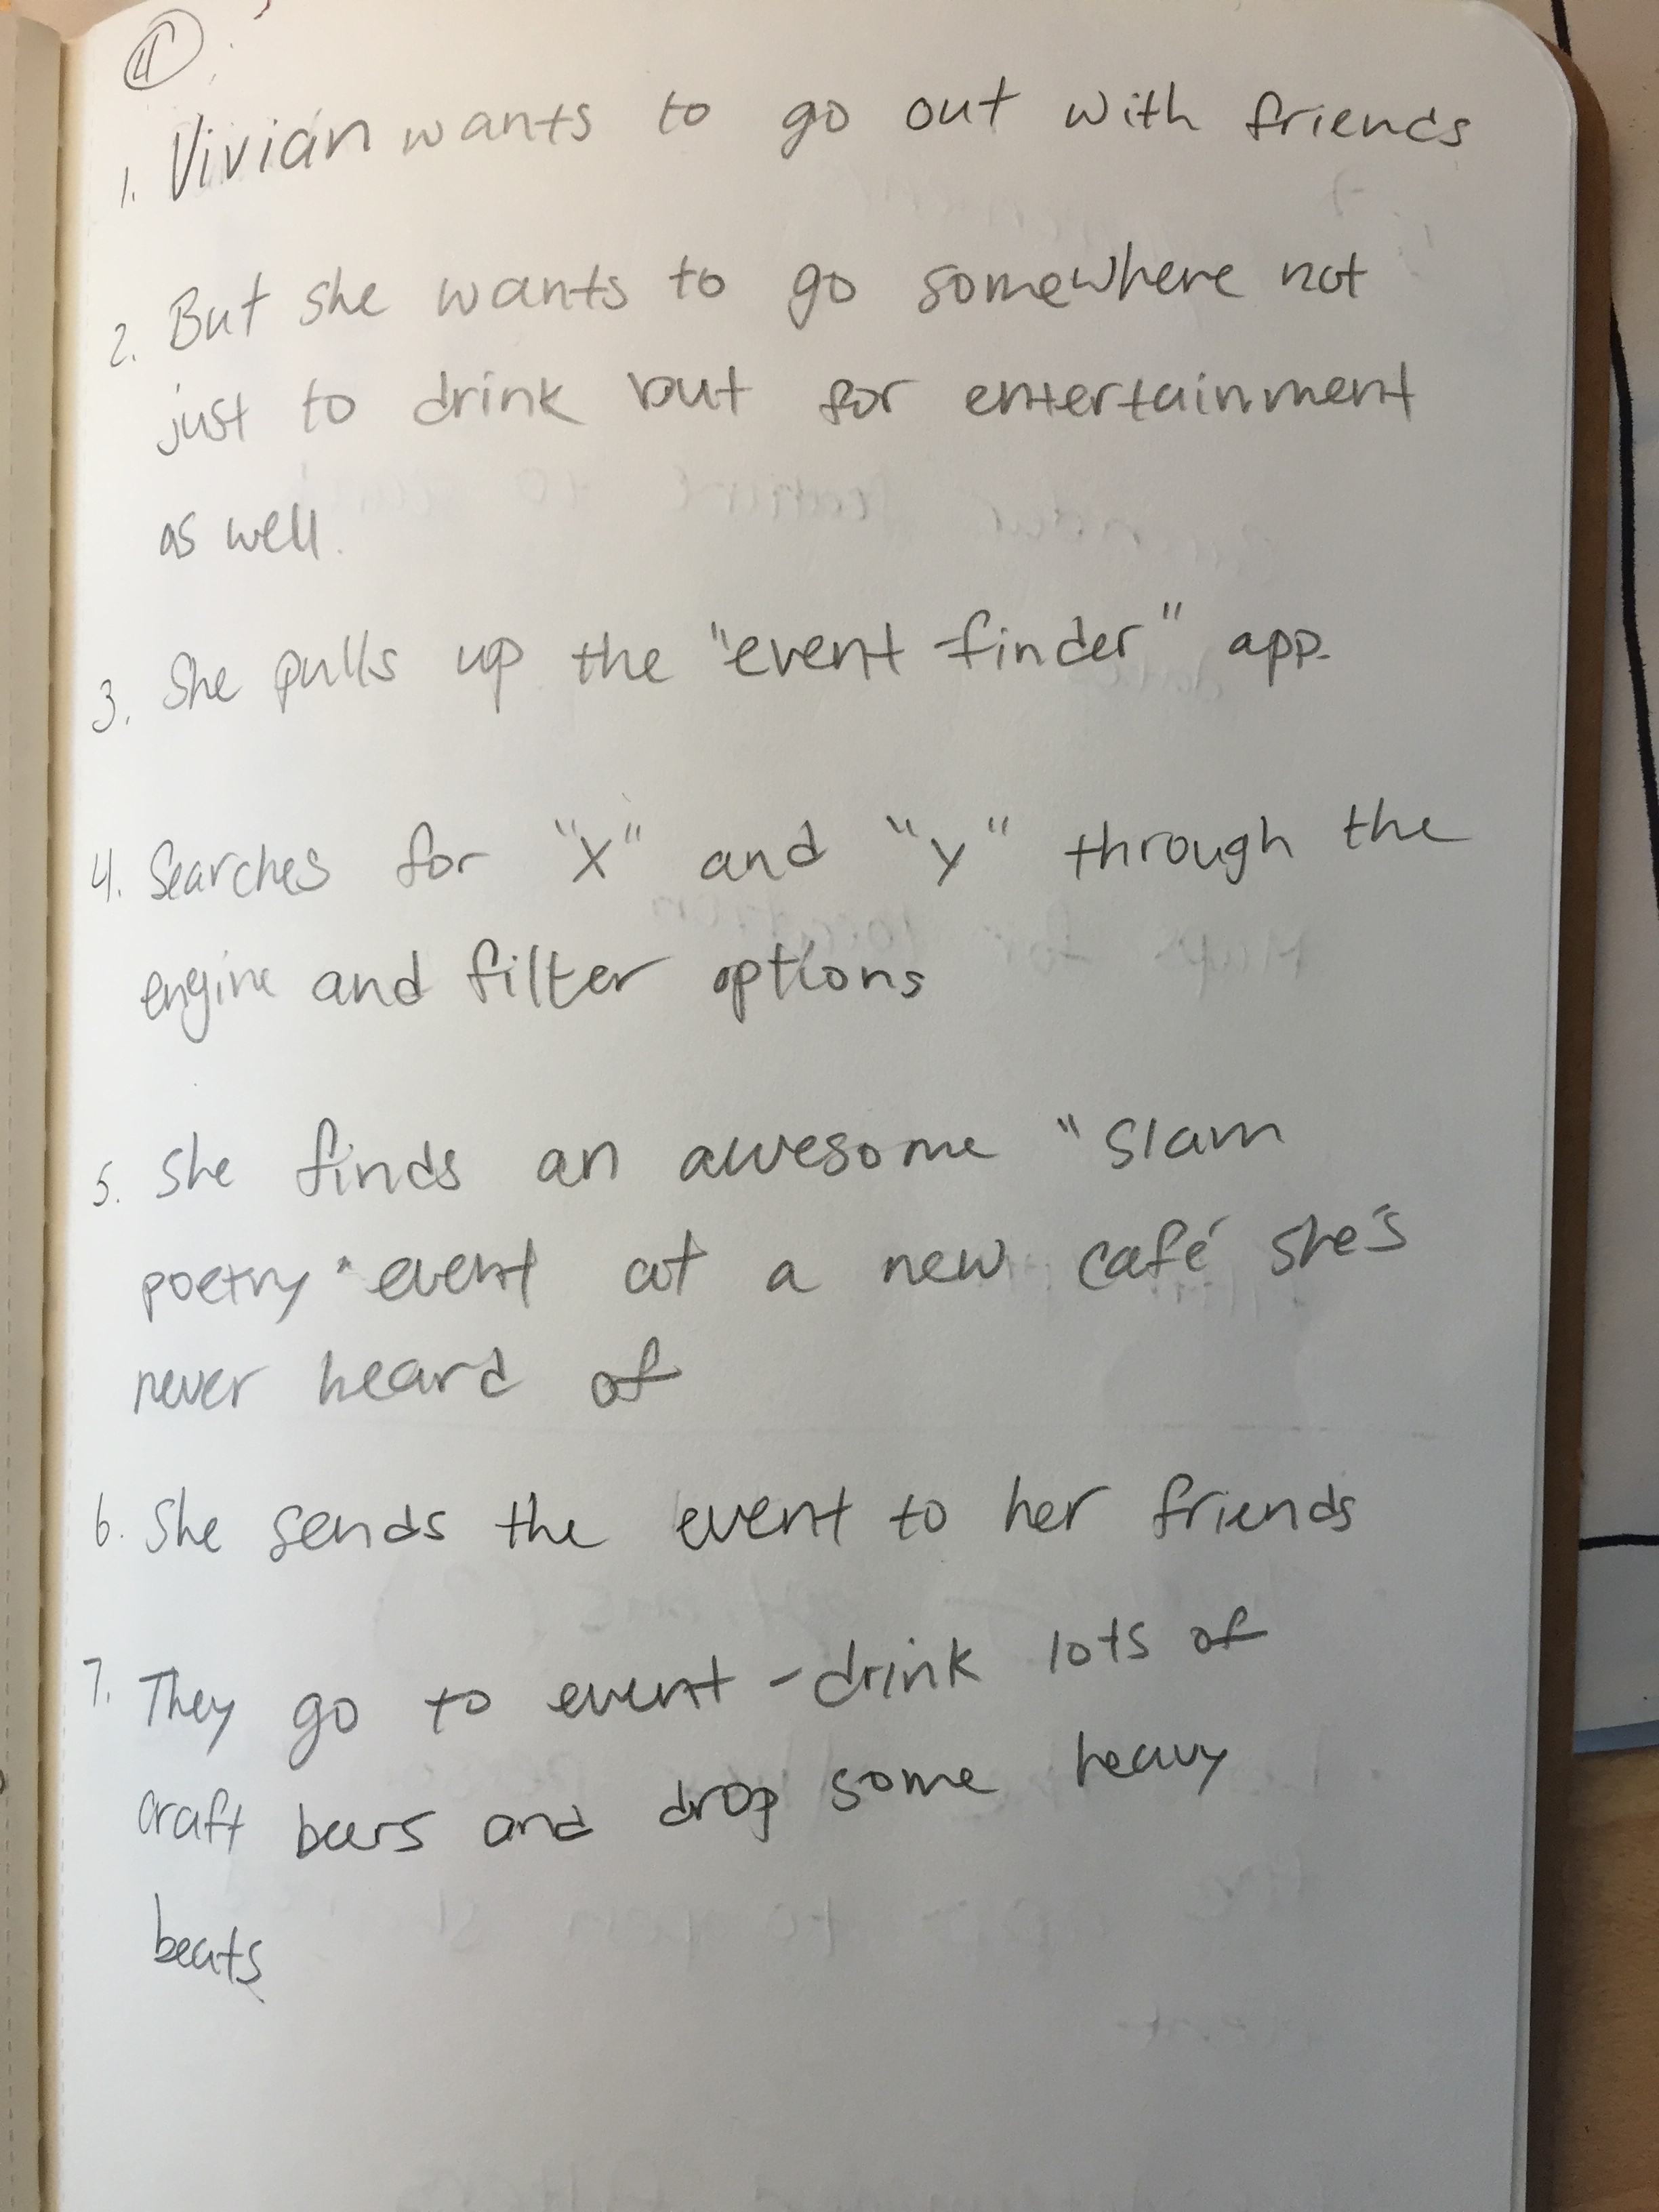 4
1. Vivian wants to go out with friends
2. But she wants to go somewhere not
just to drink but for entertainment
as well.
3. She pulls up the "event-finder" app.
4. Searches for "X" and "Y" through the
engine and filter options
5. She finds an awesome "slam
poetry" event at a new café she's
never heard of
6. She sends the event to her friends
7. They go to event - drink lots of
craft beers and drop some heavy
beats